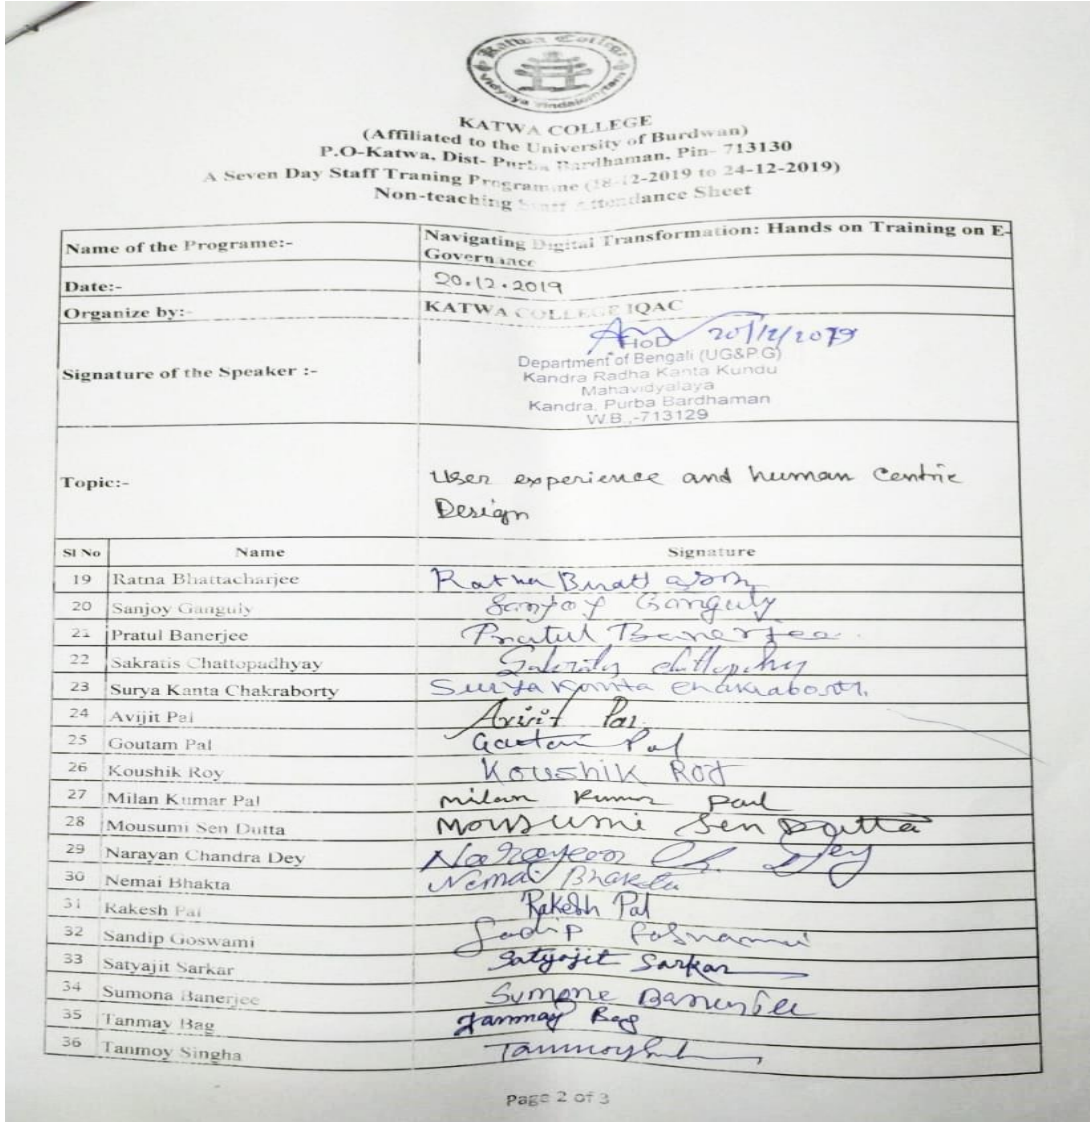 Katwa College
Vidyaya Vindatehmritam
KATWA COLLEGE
(Affiliated to the University of Burdwan)
P.O-Katwa, Dist- Purba Bardhaman, Pin- 713130
A Seven Day Staff Traning Programme (18-12-2019 to 24-12-2019)
Non-teaching Staff Attendance Sheet
Name of the Programe:- Navigating Digital Transformation: Hands on Training on E-
Governance
Date:- 20.12.2019
Organize by:- KATWA COLLEGE IQAC
20/12/2019
HoD
Department of Bengali (UG&P.G)
Kandra Radha Kanta Kundu
Mahavidyalaya
Kandra, Purba Bardhaman
W.B.,-713129
Signature of the Speaker :-
Topic:- User experience and human Centric
Design
Sl No Name Signature
19 Ratna Bhattacharjee Ratna
20 Sanjoy Ganguly Sanjoy Ganguly
21 Pratul Banerjee Pratul Banerjee
22 Sakratis Chattopadhyay
23 Surya Kanta Chakraborty Surya Kanta Chakraborty
24 Avijit Pal Avijit Pal
25 Goutam Pal Goutam Pal
26 Koushik Roy Koushik Roy
27 Milan Kumar Pal Milan Kumar Paul
28 Mousumi Sen Dutta Mousumi Sen Dutta
29 Narayan Chandra Dey Narayan Ch. Dey
30 Nemai Bhakta Nemai Bhakta
31 Rakesh Pal Rakesh Pal
32 Sandip Goswami
33 Satyajit Sarkar Satyajit Sarkar
34 Sumona Banerjee Sumone Banerjee
35 Tanmay Bag Tanmay Bag
36 Tanmoy Singha
Page 2 of 3